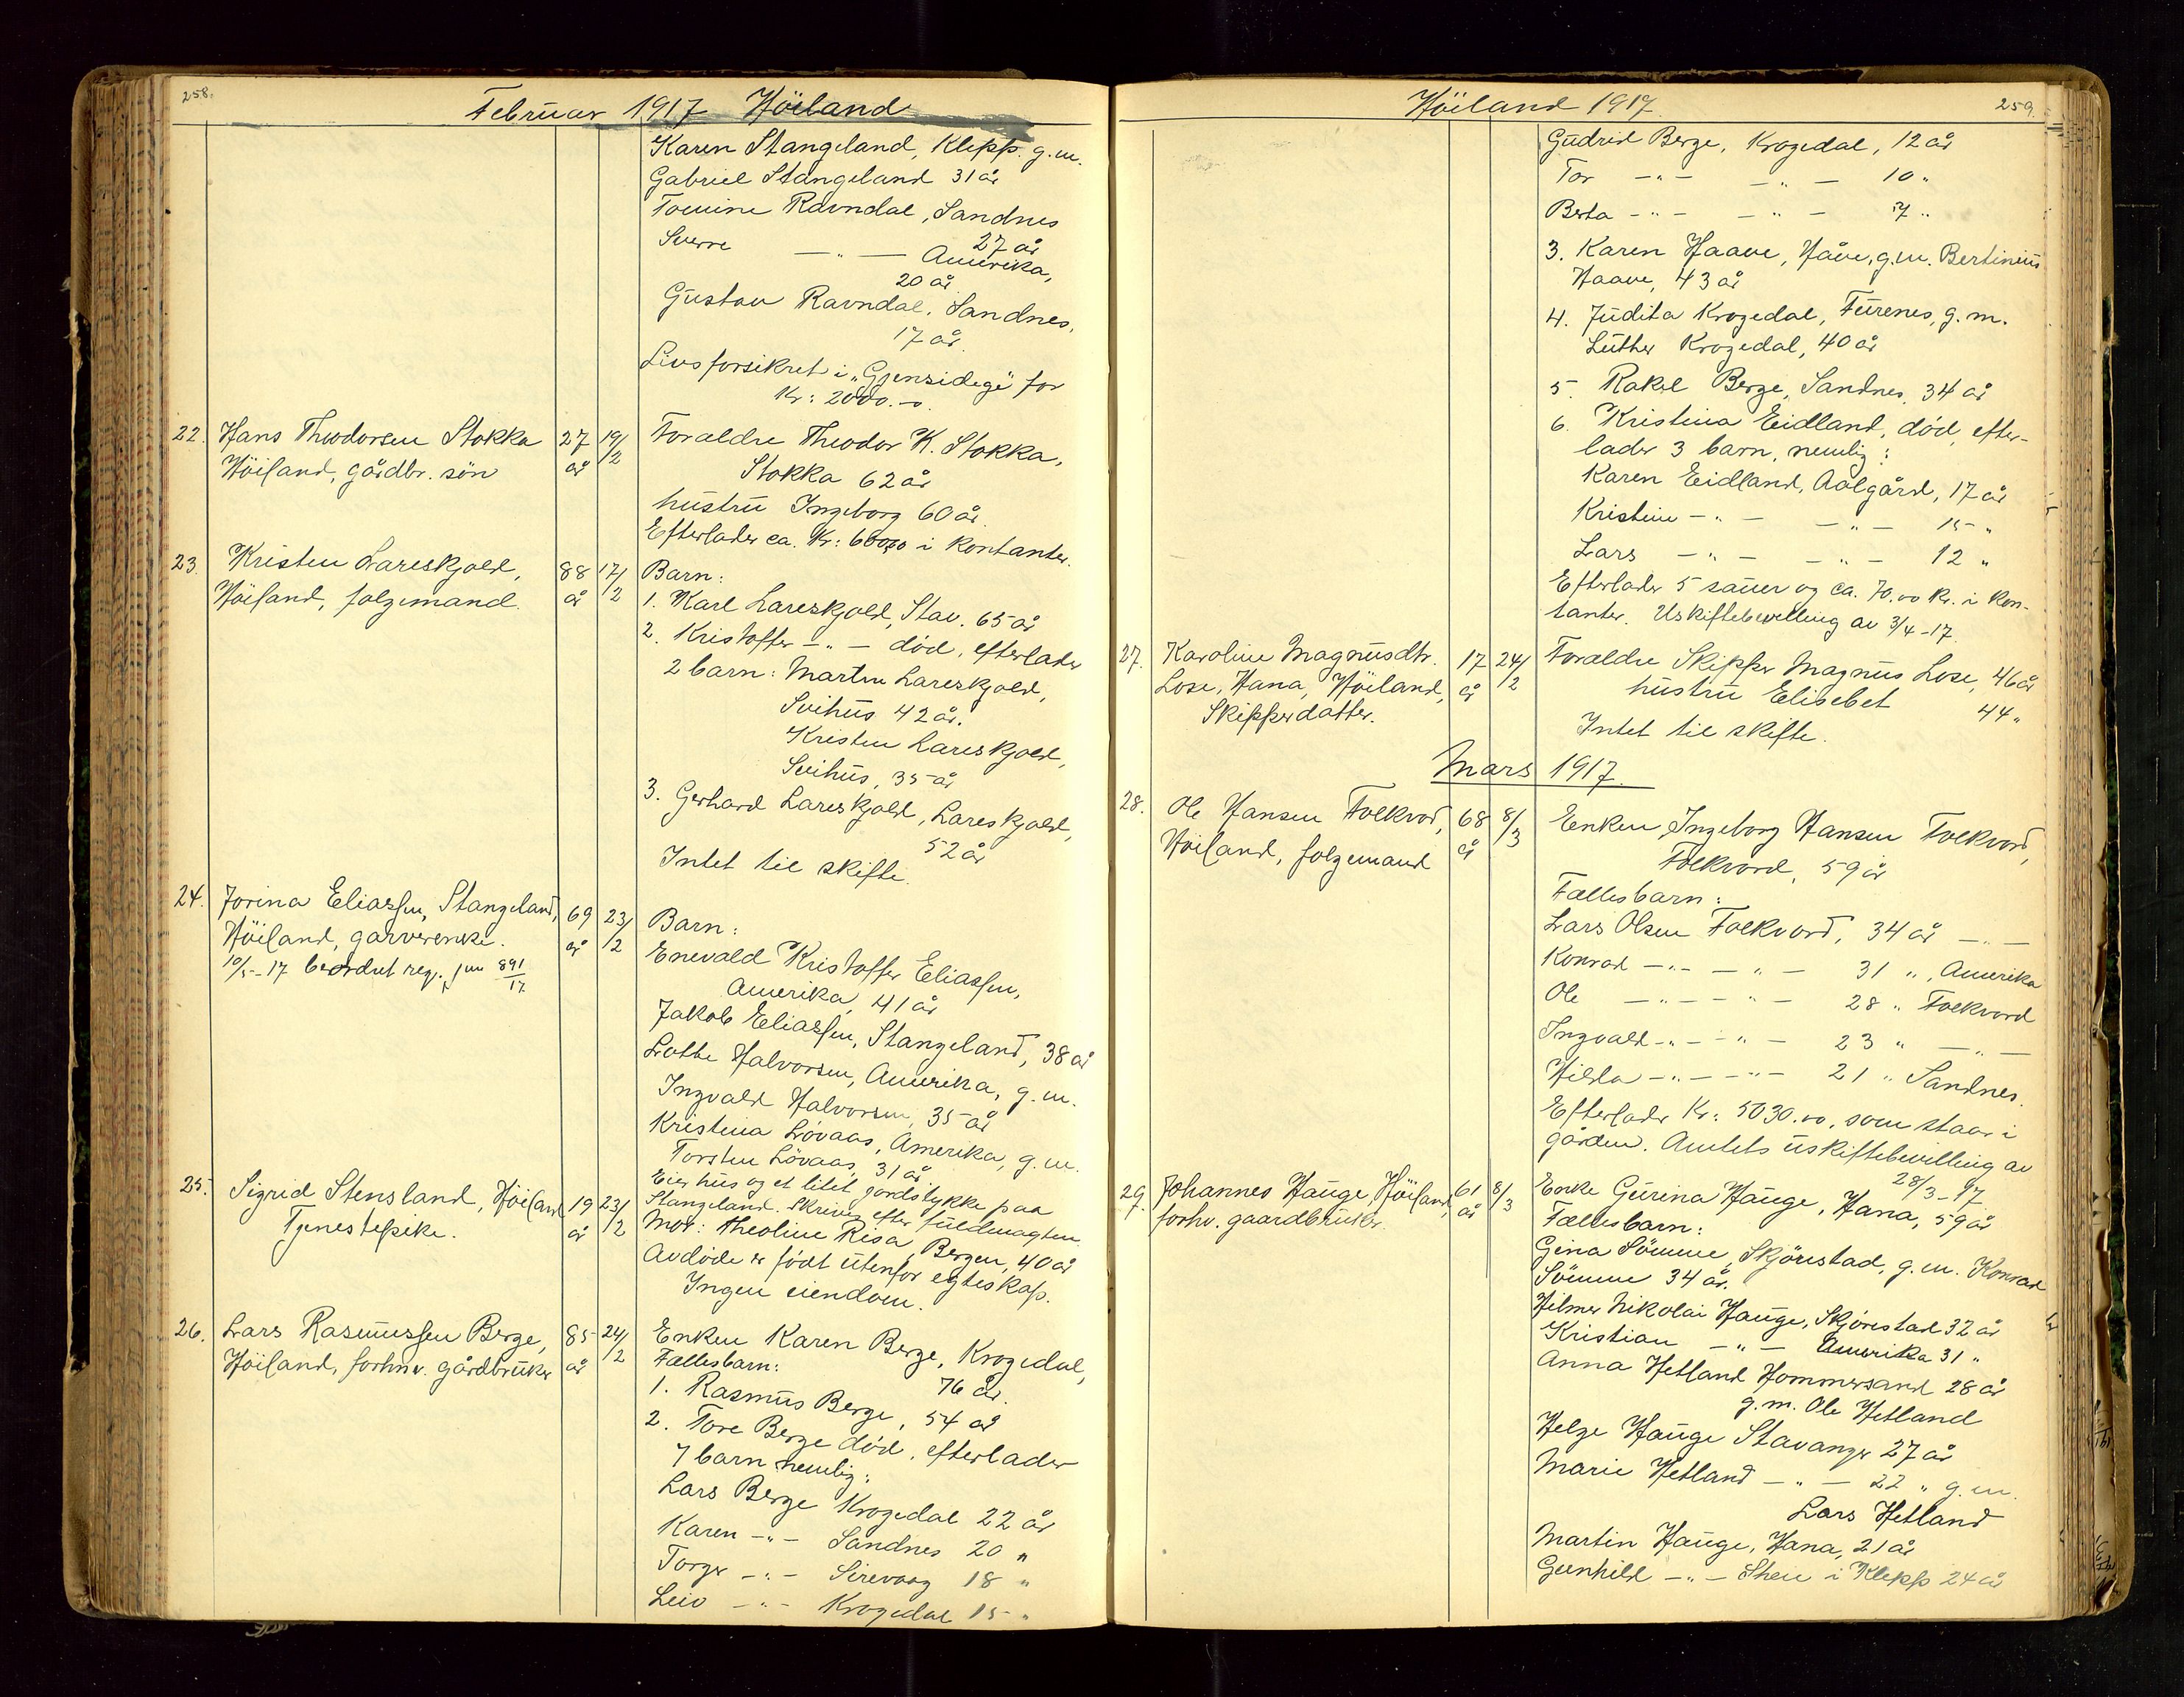 258.
Februar 1917 Höiland
Karen Stangeland, Klepp. g.m.
Gabriel Stangeland 31 år
Tomine Ravndal, Sandnes
27 år
Sverre — " — Amerika,
20 år
Gustav Ravndal, Sandnes,
17 år.
Livsforsikret i „Gjensidige" for
Kr: 2000.-
22. Hans Theodorsen Stokka 27 19/2 Forældre Theodor K. Stokka,
Höiland, gårdbr. sön år Stokka 62 år
hustru Ingeborg 60 år.
Efterlader ca. Kr: i kontanter.
23. Kristen Lareskjold, 88 17/2 Barn:
Höiland, folgemand. år 1. Karl Lareskjold, Stav. 65 år
2. Kristoffer - " - död, efterlader
2 barn: Martin Lareskjold,
Svihus 42 år.
Kristen Lareskjold,
Svihus, 35 år
3. Gerhard Lareskjold, Lareskjold,
52 år
Intet til skifte.
24. Jorina Eliassen, Stangeland, 69 23/2 Barn:
Höiland, garverenke. år Enevald Kristoffer Eliassen,
10/5-17 beordret reg. jnr 891/17 Amerika, 41 år
Jakob Eliassen, Stangeland, 38 år
Lotte Halvorsen, Amerika, g.m.
Ingvald Halvorsen, 35 år
Kristina Lövaas, Amerika, g.m.
Torsten Lövaas, 31 år
Eier hus og et litet jordstykke paa
Stangeland. Skrives efter fuldmagten
25. Sigrid Stensland, Höiland 19 23/2 Mor: Theoline Risa, Bergen, 40 år
Tjenestepike. år Avdöde er födt utenfor egteskap.
Ingen eiendom.
26. Lars Rasmussen Berge, 85 24/2 Enken Karen Berge, Krogedal,
Höiland, forhnv. gårdbruker år 76 år.
Fællesbarn:
1. Rasmus Berge, 54 år
2. Tore Berge död, efterlader
7 barn nemlig:
Lars Berge Krogedal 22 år
Karen - " - Sandnes 20 "
Torger - " - Sirevaag 18 "
Leiv - " - Krogedal 15 "
Höiland 1917.
259.
Gudrid Berge, Krogedal, 12 år
Tor — " — — " — 10 "
Berta — " — — " — 7 "
3. Karen Haave, Håve, g.m. Bertinius
Haave, 43 år
4. Judita Krogedal, Furenes, g.m.
Luther Krogedal, 40 år
5. Rakel Berge, Sandnes, 34 år
6. Kristina Eidland, död, efter-
lader 3 barn, nemlig:
Karen Eidland, Aalgård, 17 år
Kristine — " — — " — 15 "
Lars — " — — " — 12 "
Efterlader 5 sauer og ca. 70.00 Kr. i kon-
tanter. Uskiftebevilling av 3/4-17.
27. Karoline Magnusdtr. 17 24/2 Forældre Skipper Magnus Lose, 46 år
Lose, Hana, Höiland, år hustru Elisebet 44 "
Skipperdatter. Intet til skifte.
Mars 1917.
28. Ole Hansen Folkvord, 68 8/3 Enken Ingeborg Hansen Folkvord,
Höiland, folgemand år Folkvord, 59 år
Fællesbarn:
Lars Olsen Folkvord, 34 år — " —
Konrad — " — — " — 31 ", Amerika
Ole — " — — " — 28 " Folkvord
Ingvald — " — — " — 23 " — " —
Hilda — " — — " — 21 " Sandnes.
Efterlader Kr: 5030.00, som staar i
gården. Amtets uskiftebevilling av
28/3-17
29. Johannes Hauge, Höiland, 61 8/3 Enke Gurina Hauge, Hana, 59 år
forhv. gaardbruker. år Fællesbarn:
Gina Sömme, Skjörestad, g.m. Konrad
Sömme 34 år.
Hilmer Nikolai Hauge, Skjörestad 32 år
Kristian — " — Amerika 31 "
Anna Hetland Hommersand 28 år
g.m. Ole Hetland
Helge Hauge Stavanger 27 år
Marie Hetland — " — 22 " g.m.
Lars Hetland
Martin Hauge, Hana, 21 år
Gunhild — " — i Klepp 24 år